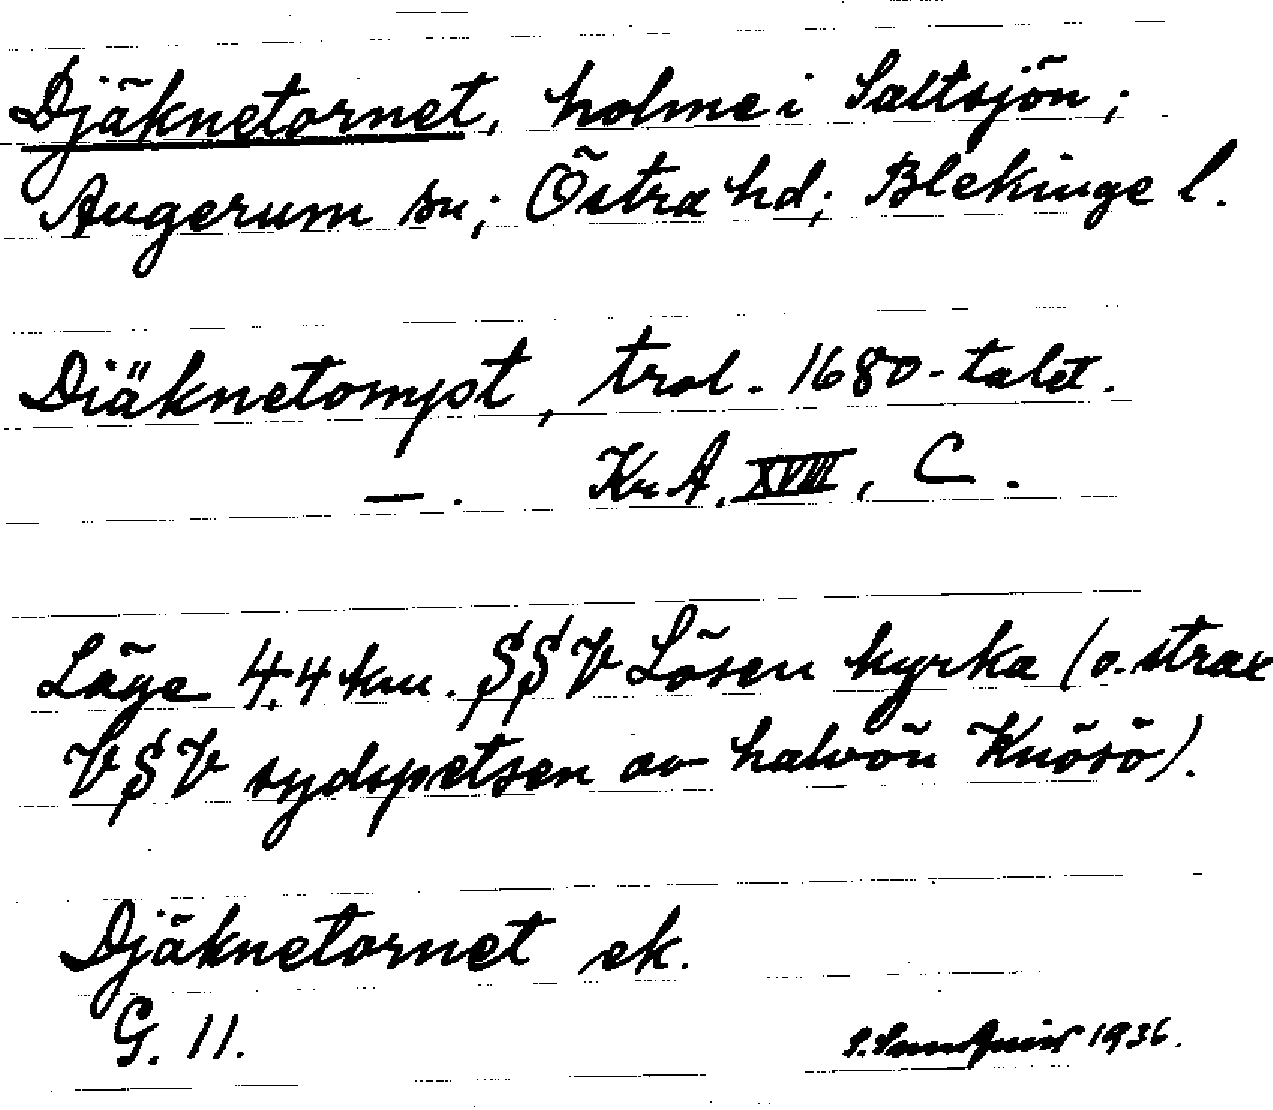 Djäknetornet, holme i Saltsjön;
Augerum sn; Östra hd; Blekinge l.
Diäknetompt, trol. 1680-talet.
—. KrA, XVIII, C.
Läge 4.4 km. SSV Lösen kyrka (o. strax
VSV sydspetsen av halvön Knösö).
Djäknetornet ek.
G. 11.
1936.